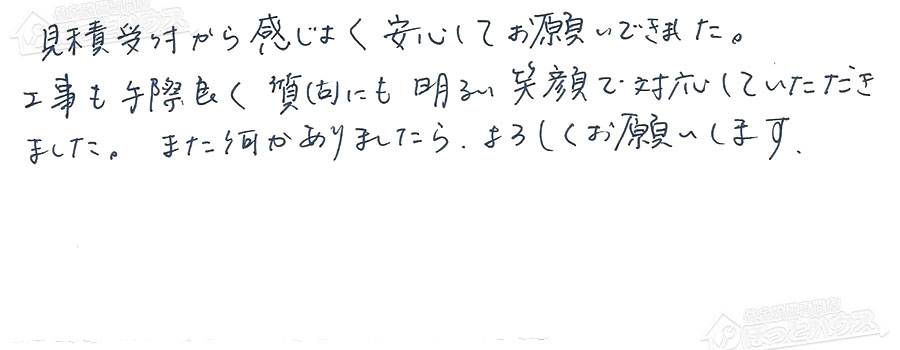 見積受付から感じよく安心してお願いできました。
工事も手際良く質問にも明るい笑顔で対応していただき
ました。また何かありましたら、よろしくお願いします.
住宅設備専門店
ほっとハウス